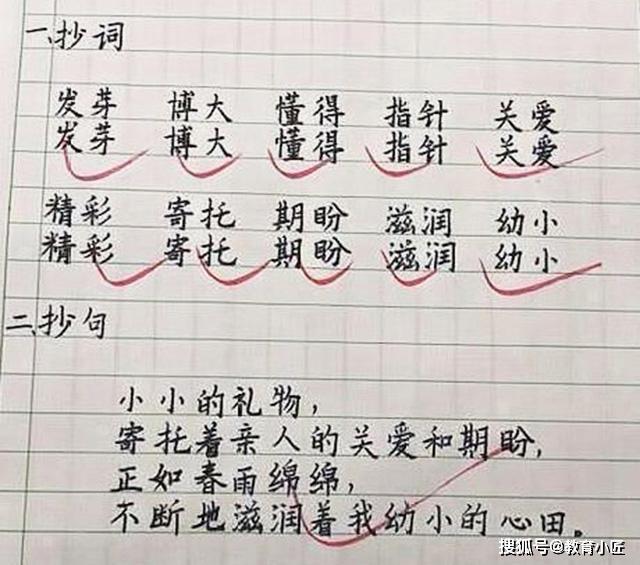 一、抄词
发芽 博大 懂得 指针 关爱
发芽 博大 懂得 指针 关爱
精彩 寄托 期盼 滋润 幼小
精彩 寄托 期盼 滋润 幼小
二、抄句
小小的礼物，
寄托着亲人的关爱和期盼，
正如春雨绵绵，
不断地滋润着我幼小的心田。
搜狐号@教育小匠